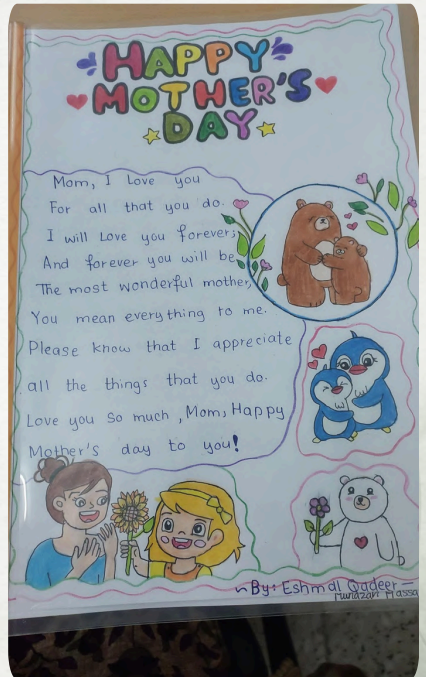 HAPPY
MOTHER'S
DAY
Mom, I Love you
For all that you do.
I will Love you forever,
And forever you will be
The most wonderful mother,
You mean everything to me.
Please know that I appreciate
all the things that you do.
Love you so much, Mom, Happy
Mother's day to you!
~By: Eshmal Qadeer